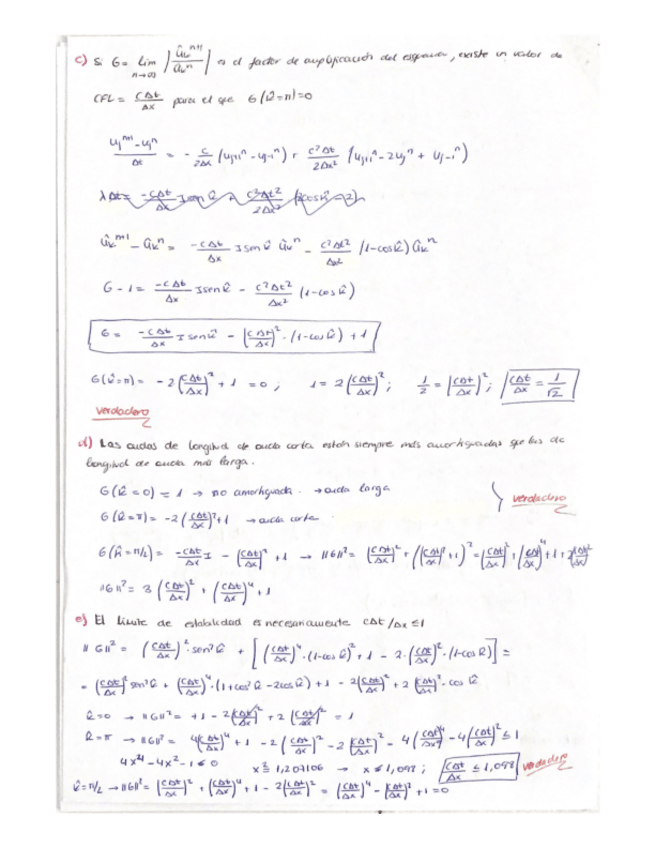 c) Si G = lim n→∞ |û_k^{n+1} / û_k^n| es el factor de amplificación del esquema, existe un valor de
CFL = cΔt/Δx para el que G(k̂=π)=0
(u_j^{n+1} - u_j^n)/Δt = - c/2Δx (u_{j+1}^n - u_{j-1}^n) + c²Δt/2Δx² (u_{j+1}^n - 2u_j^n + u_{j-1}^n)
û_k^{n+1} - û_k^n = -cΔt/Δx I sen k̂ û_k^n - c²Δt²/Δx² (1-cos k̂) û_k^n
G - 1 = -cΔt/Δx I sen k̂ - c²Δt²/Δx² (1-cos k̂)
G = -cΔt/Δx I sen k̂ - (cΔt/Δx)² · (1-cos k̂) + 1
G(k̂=π) = -2(cΔt/Δx)² + 1 = 0 ; 1 = 2(cΔt/Δx)² ; 1/2 = (cΔt/Δx)² ; cΔt/Δx = 1/√2
verdadero
d) Las ondas de longitud de onda corta están siempre más amortiguadas que las de
longitud de onda más larga.
G(k̂=0) = 1 → no amortiguada. → onda larga
verdadero
G(k̂=π) = -2(cΔt/Δx)² + 1 → onda corta
G(k̂=π/2) = -cΔt/Δx I - (cΔt/Δx)² + 1 → ||G||² = (cΔt/Δx)² + ((cΔt/Δx)² + 1)² = (cΔt/Δx)² + (cΔt/Δx)⁴ + 1 + 2(cΔt/Δx)²
||G||² = 3(cΔt/Δx)² + (cΔt/Δx)⁴ + 1
e) El límite de estabilidad es necesariamente cΔt/Δx ≤ 1
||G||² = (cΔt/Δx)² · sen² k̂ + [(cΔt/Δx)⁴ · (1-cos k̂)² + 1 - 2·(cΔt/Δx)² · (1-cos k̂)] =
= (cΔt/Δx)² sen² k̂ + (cΔt/Δx)⁴ · (1+cos² k̂ - 2cos k̂) + 1 - 2(cΔt/Δx)² + 2(cΔt/Δx)² · cos k̂
k̂=0 → ||G||² = +1 - 2(cΔt/Δx)² + 2(cΔt/Δx)² = 1
k̂=π → ||G||² = 4(cΔt/Δx)⁴ + 1 - 2(cΔt/Δx)² - 2(cΔt/Δx)² - 4(cΔt/Δx)⁴ - 4(cΔt/Δx)² ≤ 1
4x⁴ - 4x² - 1 ≤ 0 x² = 1,207106 → x ≤ 1,098 ; cΔt/Δx ≤ 1,098 verdadero
k̂=π/2 → ||G||² = (cΔt/Δx)² + (cΔt/Δx)⁴ + 1 - 2(cΔt/Δx)² = (cΔt/Δx)⁴ - (cΔt/Δx)² + 1 = 0